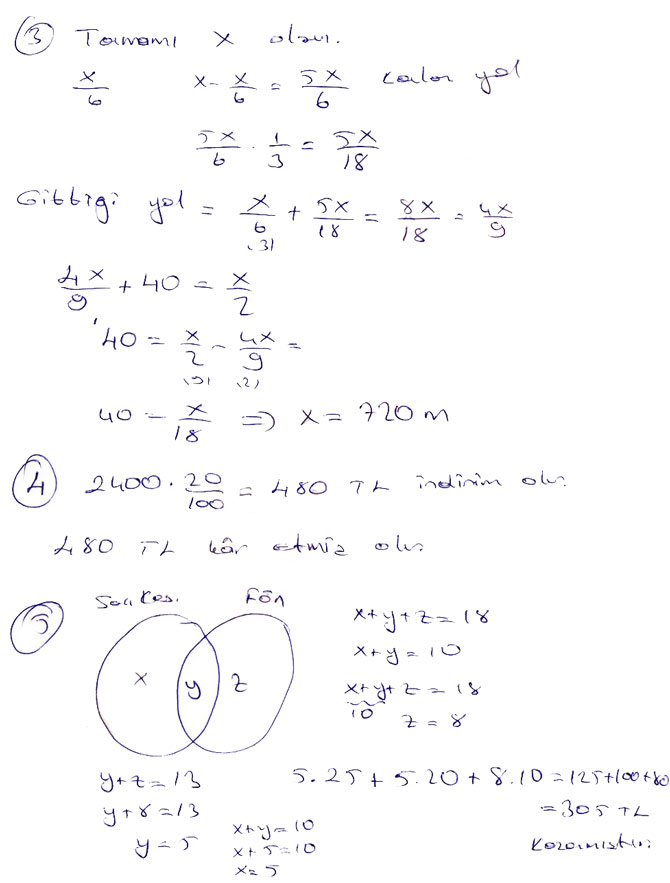 ③ Tamamı x olsun.
x/6    x - x/6 = 5x/6 kalan yol
5x/6 · 1/3 = 5x/18
Gittiği yol = x/6 + 5x/18 = 8x/18 = 4x/9
(3)
4x/9 + 40 = x/2
40 = x/2 - 4x/9 =
(9) (2)
40 - x/18 ⇒ x = 720 m
④ 2400 · 20/100 = 480 TL indirim olur.
480 TL kâr etmiş olur.
⑤ Saç Kes.    Fön
x y z
x+y+z=18
x+y=10
x+y+z=18
10    z=8
y+z=13
y+8=13
y=5
x+y=10
x+5=10
x=5
5.25+5.20+8.10=125+100+80
=305 TL
kazanmıştır.